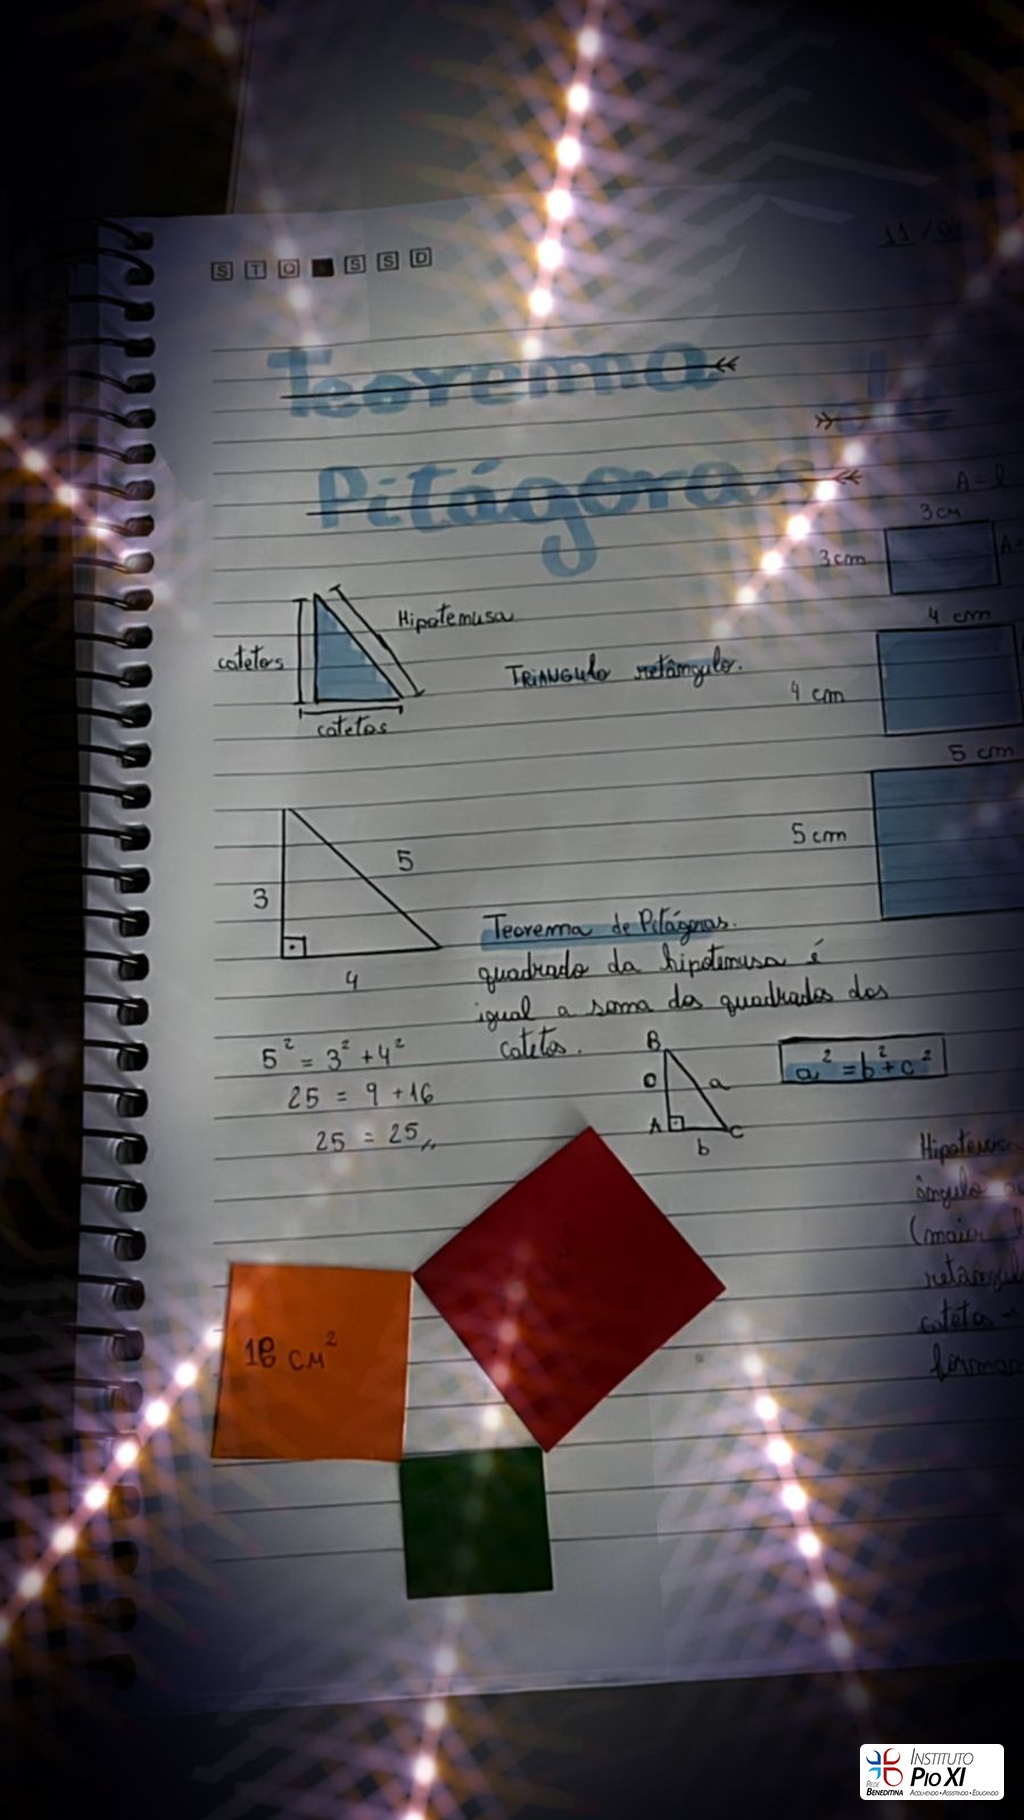 S T Q S S D
11/0
Teorema
de
Pitágoras
A = l
3 cm
3 cm
A =
4 cm
Hipotemusa
catetos
TRIANGULO retângulo.
4 cm
catetos
5 cm
5 cm
5
3
Teorema de Pitágoras.
4
quadrado da hipotemusa é
igual a soma dos quadrados dos
catetos.
5² = 3² + 4²
25 = 9 + 16
25 = 25
B
c
a
A
C
b
a² = b² + c²
Hipotenusa
ângulo
(maior
retangul
catetos -
forma
16 cm²
INSTITUTO
PIO XI
REDE
BENEDITINA
ACOLHENDO • ASSISTINDO • EDUCANDO